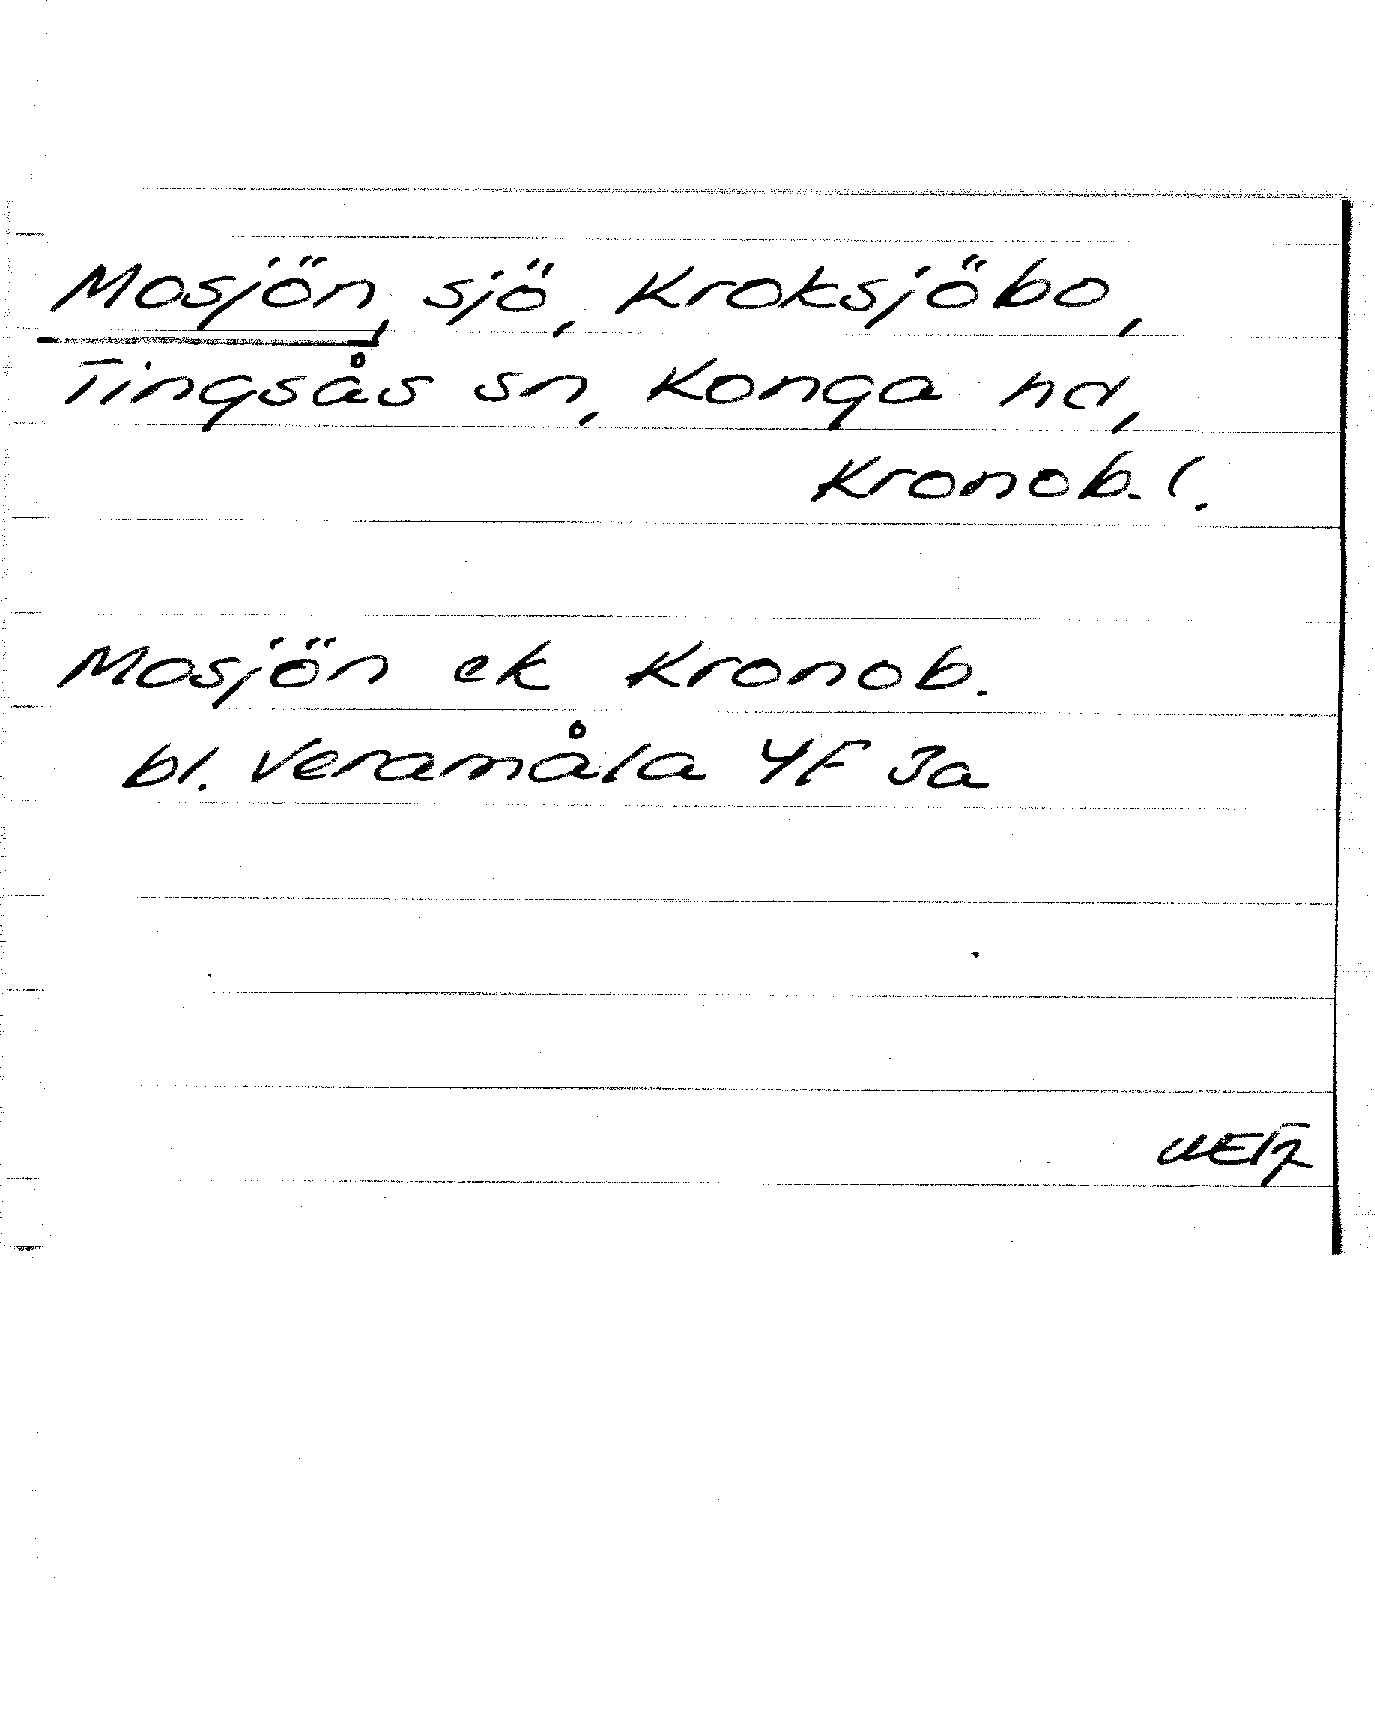 Mosjön, sjö, Kroksjöbo,
Tingsås sn, Konga hd,
Kronob. l.
Mosjön ek Kronob.
bl. Veramåla 4F 3a